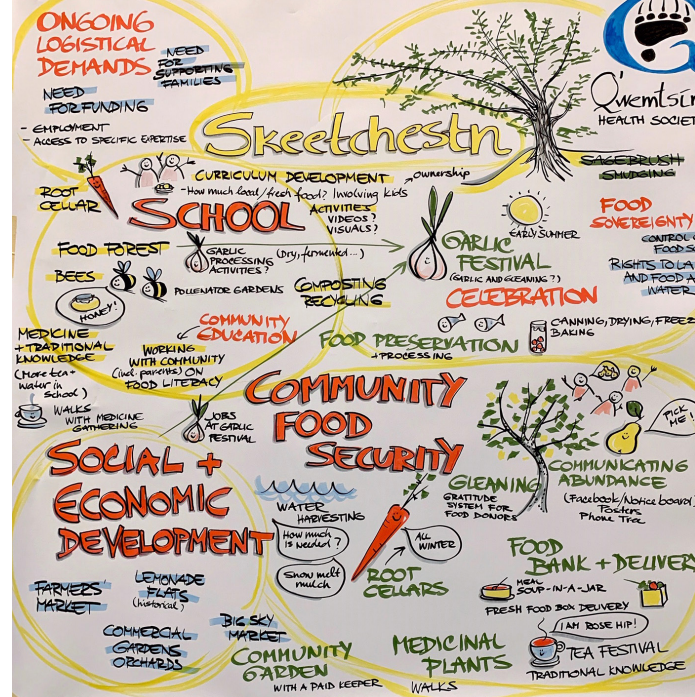 ONGOING
LOGISTICAL
DEMANDS
NEED
FOR
SUPPORTING
FAMILIES
NEED
FOR FUNDING
- EMPLOYMENT
- ACCESS TO SPECIFIC EXPERTISE
Skeetchestn
Q'wemtsín
HEALTH SOCIET
SAGEBRUSH
SMUDGING
ROOT
CELLAR
CURRICULUM DEVELOPMENT
- How much local/fresh food? Involving kids
ownership
SCHOOL
ACTIVITIES
VIDEOS?
VISUALS?
FOOD FOREST
GARLIC
PROCESSING
ACTIVITIES?
(Dry, fermented...)
BEES
HONEY!
POLLENATOR GARDENS
COMPOSTING
RECYCLING
GARLIC
FESTIVAL
(GARLIC AND GLEANING?)
EARLY SUMMER
CELEBRATION
FOOD
SOVEREIGNTY
CONTROL O
FOOD S
RIGHTS TO LA
AND FOOD A
WATER
COMMUNITY
EDUCATION
MEDICINE
+ TRADITIONAL
KNOWLEDGE
(More tea +
water in
school)
WORKING
WITH COMMUNITY
(incl. parents) ON
FOOD LITERACY
FOOD PRESERVATION
+ PROCESSING
CANNING, DRYING, FREEZ
BAKING
WALKS
WITH MEDICINE
GATHERING
JOBS
AT GARLIC
FESTIVAL
COMMUNITY
FOOD
SECURITY
PICK
ME!
SOCIAL +
ECONOMIC
DEVELOPMENT
WATER
HARVESTING
How much
is needed?
Snow melt
mulch
ALL
WINTER
ROOT
CELLARS
GLEANING
GRATITUDE
SYSTEM FOR
FOOD DONORS
COMMUNICATING
ABUNDANCE
(Facebook/Notice board
Posters
Phone Tree
FOOD
BANK + DELIVERY
MEAL
SOUP-IN-A-JAR
FRESH FOOD BOX DELIVERY
I AM ROSE HIP!
TEA FESTIVAL
TRADITIONAL KNOWLEDGE
FARMERS'
MARKET
LEMONADE
FLATS
(historical)
COMMERCIAL
GARDENS
ORCHARDS
BIG SKY
MARKET
COMMUNITY
GARDEN
WITH A PAID KEEPER
MEDICINAL
PLANTS
WALKS